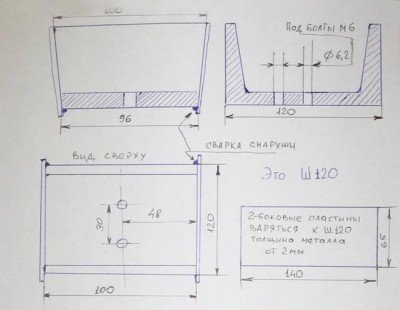 100
ПОД БОЛТЫ М6
Ф6,2
96
120
СВАРКА СНАРУЖИ
ВИД СВЕРХУ
Это Ш120
48
30
120
100
2-БОКОВЫЕ ПЛАСТИНЫ
ВАРЯТЬСЯ К Ш120
ТОЛЩИНА МЕТАЛЛА
ОТ 2ММ
65
140